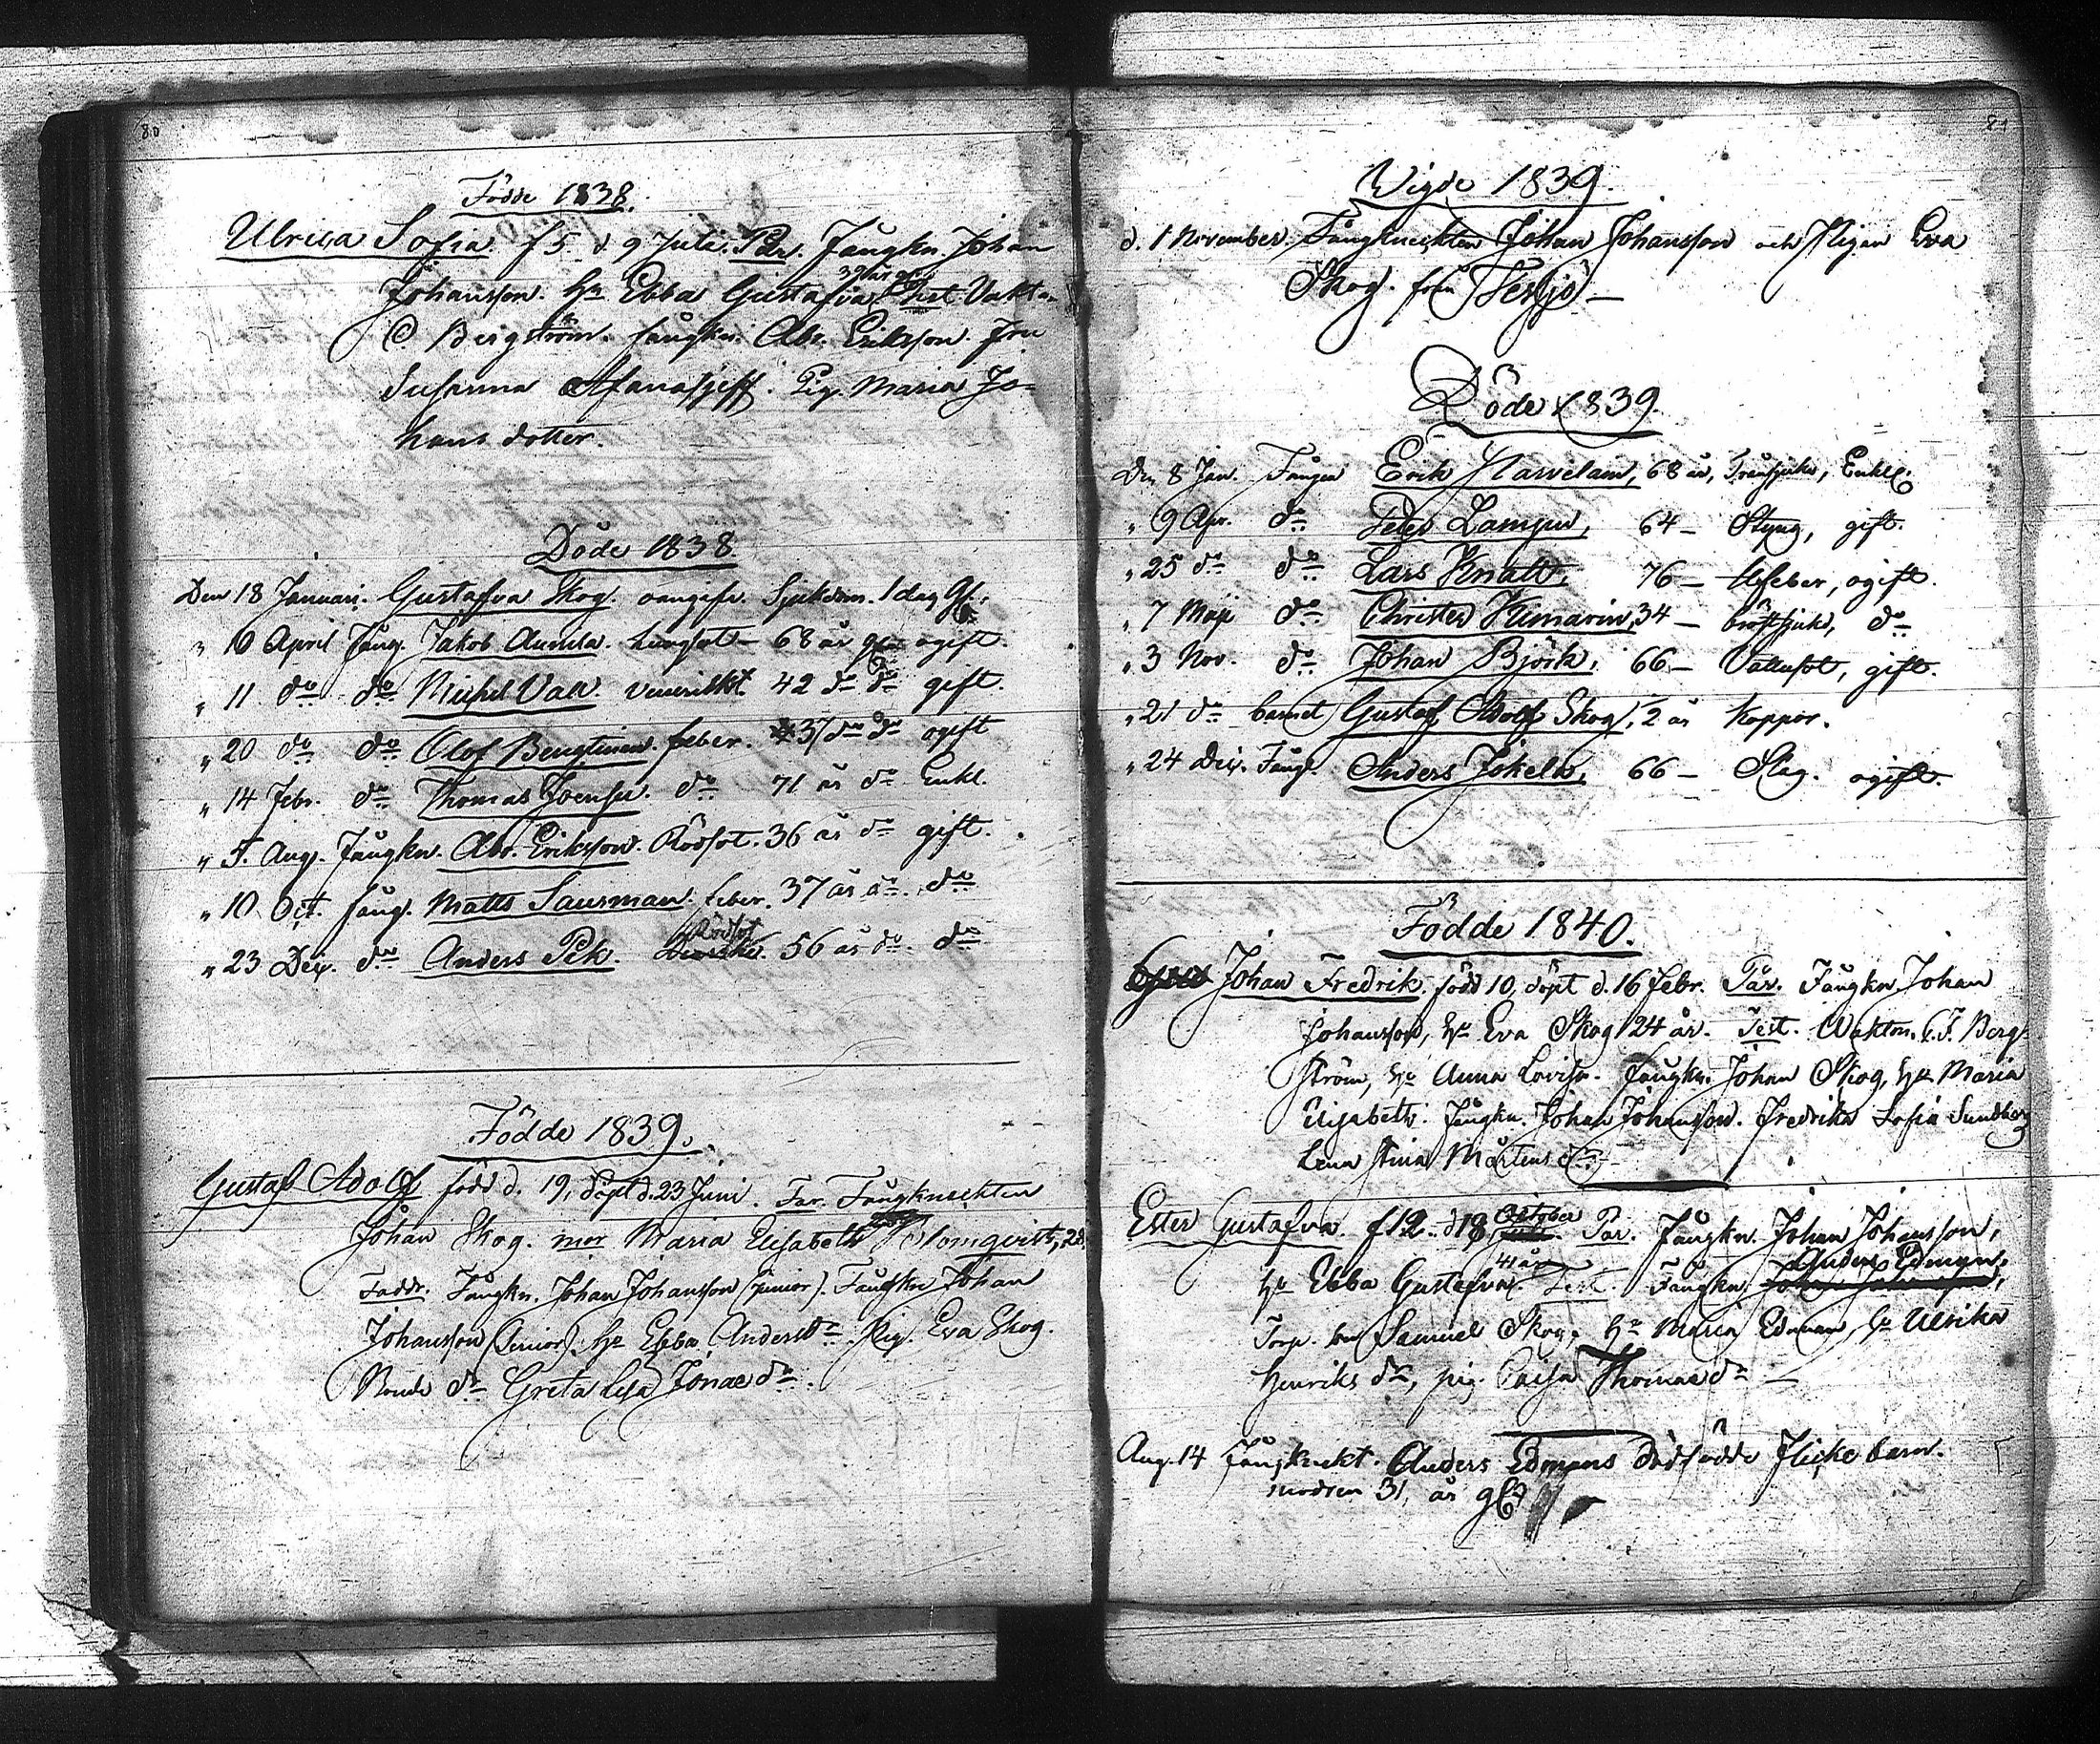 80
Födde 1838.
Ulrica Sofia. f 5. d 9 Juli. Par. Fångkn. Johan
Johansson. Hu Ebba Gustafva 39 år. Test. Vaktm
C. Bergström. fångkn. Abr. Eriksson. Fru
Susanna Afanasjeff. Pig. Maria Jo=
hans dotter.
Döde 1838
Den 18 Januari. Gustafva Skog. oangifv. Sjukdom. 1 dag gl.
" 10 April Fång. Jakob lungsot 68 år ogift.
" 11 do do Michel Vall venerisk 42 do do gift.
" 20 do do Olof Bengtinen. feber. 37 do do ogift
" 14 Febr. do Thomas do 71 år do Enkl.
" 5. Aug. Fångkn. Abr. Eriksson. Rödsot. 36 år do gift.
" 10 Oct. fång. Matts Sausman. feber. 37 år do. do
" 23 Dec. do Anders Pek. Rödsot 56 år do. do
Födde 1839.
Gustaf Adolf född d. 19, döpt d. 23 Juni. Far. Fångknechten
Johan Skog. mor Maria Elisabeth Blomqvist, 28.
Faddr. Fångkn. Johan Johansson (junior). Fångkn Johan
Johansson (Senior). Hu Ebba Andersdr. Pig. Eva Skog.
Bonde dr Greta Lisa Jonae dr.
81
Wigde 1839.
d. 1 November. Fångknechten Johan Johansson och Pigan Eva
Skog. från Tesjö —
Döde 1839.
Den 8 Jan. Fången Erik Harvelain, 68 år, Enkl.
" 9 Apr. do Peter Lampu, 64 — Styng, gift.
" 25 do do Lars Knatt, 76 — feber, ogift.
" 7 Maji do Christer Kimarin, 34 — bröstsjuka, do
" 3 Nov. do Johan Björk, 66 — Vattusot, gift.
" 21 do barnet Gustaf Adolf Skog, 2 år Koppor.
" 24 Dec. Fång. Anders Jokela, 66 — Slag. ogift.
Födde 1840.
Johan Fredrik. född 10, döpt d. 16 febr. Par. Fångkn Johan
Johansson, Hu Eva Skog 24 år. Test. Waktm. C. F. Berg
ström, Hu Anna Lovisa. Fångkn. Johan Skog, Hu Maria
Elisabeth. Fångkn. Johan Johansson. Fredrika Sofia Sundberg
Lena Stina Mårtens dr —
Ester Gustafva. f 12. d 18 October Par. Fångkn. Johan Johansson,
Hu Ebba Gustafva. 41 år Test. Fångkn. Anders Edman,
Torp. Samuel Skog, Hu Maria Edman, Hu Ulrika
Henriks dr, pig. Caisa Thomae dr —
Aug. 14 Fångknekt. Anders Edmans dödfödde Flicke barn.
modren 31, år gl